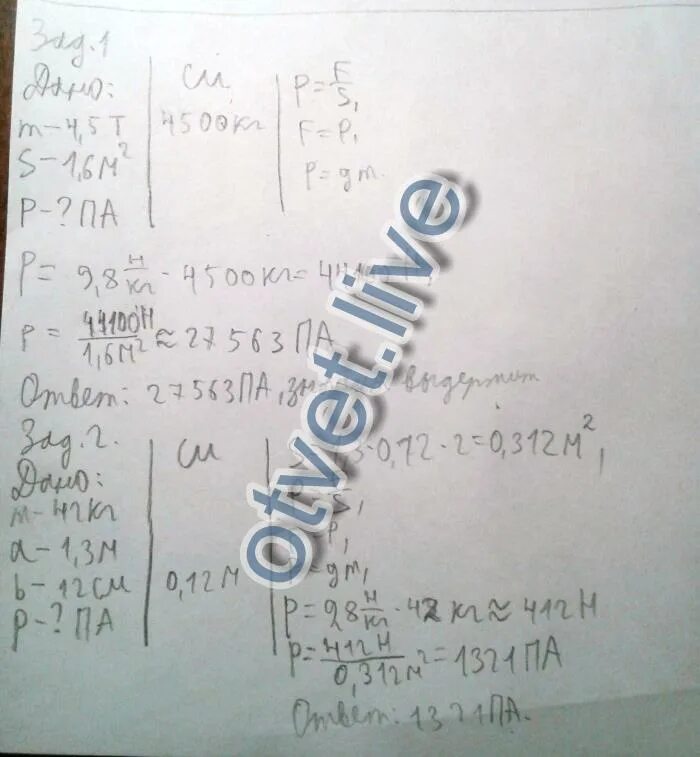 Зад.1
Дано:
m-4,5 Т
S-1,6м²
P-? ПА
СИ
4500кг
P=F/S,
F=P,
P=gm.
P= 9,8 Н/кг · 4500кг=
P= 44100Н/1,6м² ≈ 27 563 ПА
Ответ: 27563ПА, выдержит
Зад.2.
Дано:
m-42кг
a-1,3м
b-12см
P-? ПА
СИ
0,12м
·0,12·2=0,312м²,
S,
P,
=gm,
P=9,8 Н/кг · 42 кг ≈ 412 Н
P= 412Н/0,312м² = 1321 ПА
Ответ: 1321ПА.
otvet.live